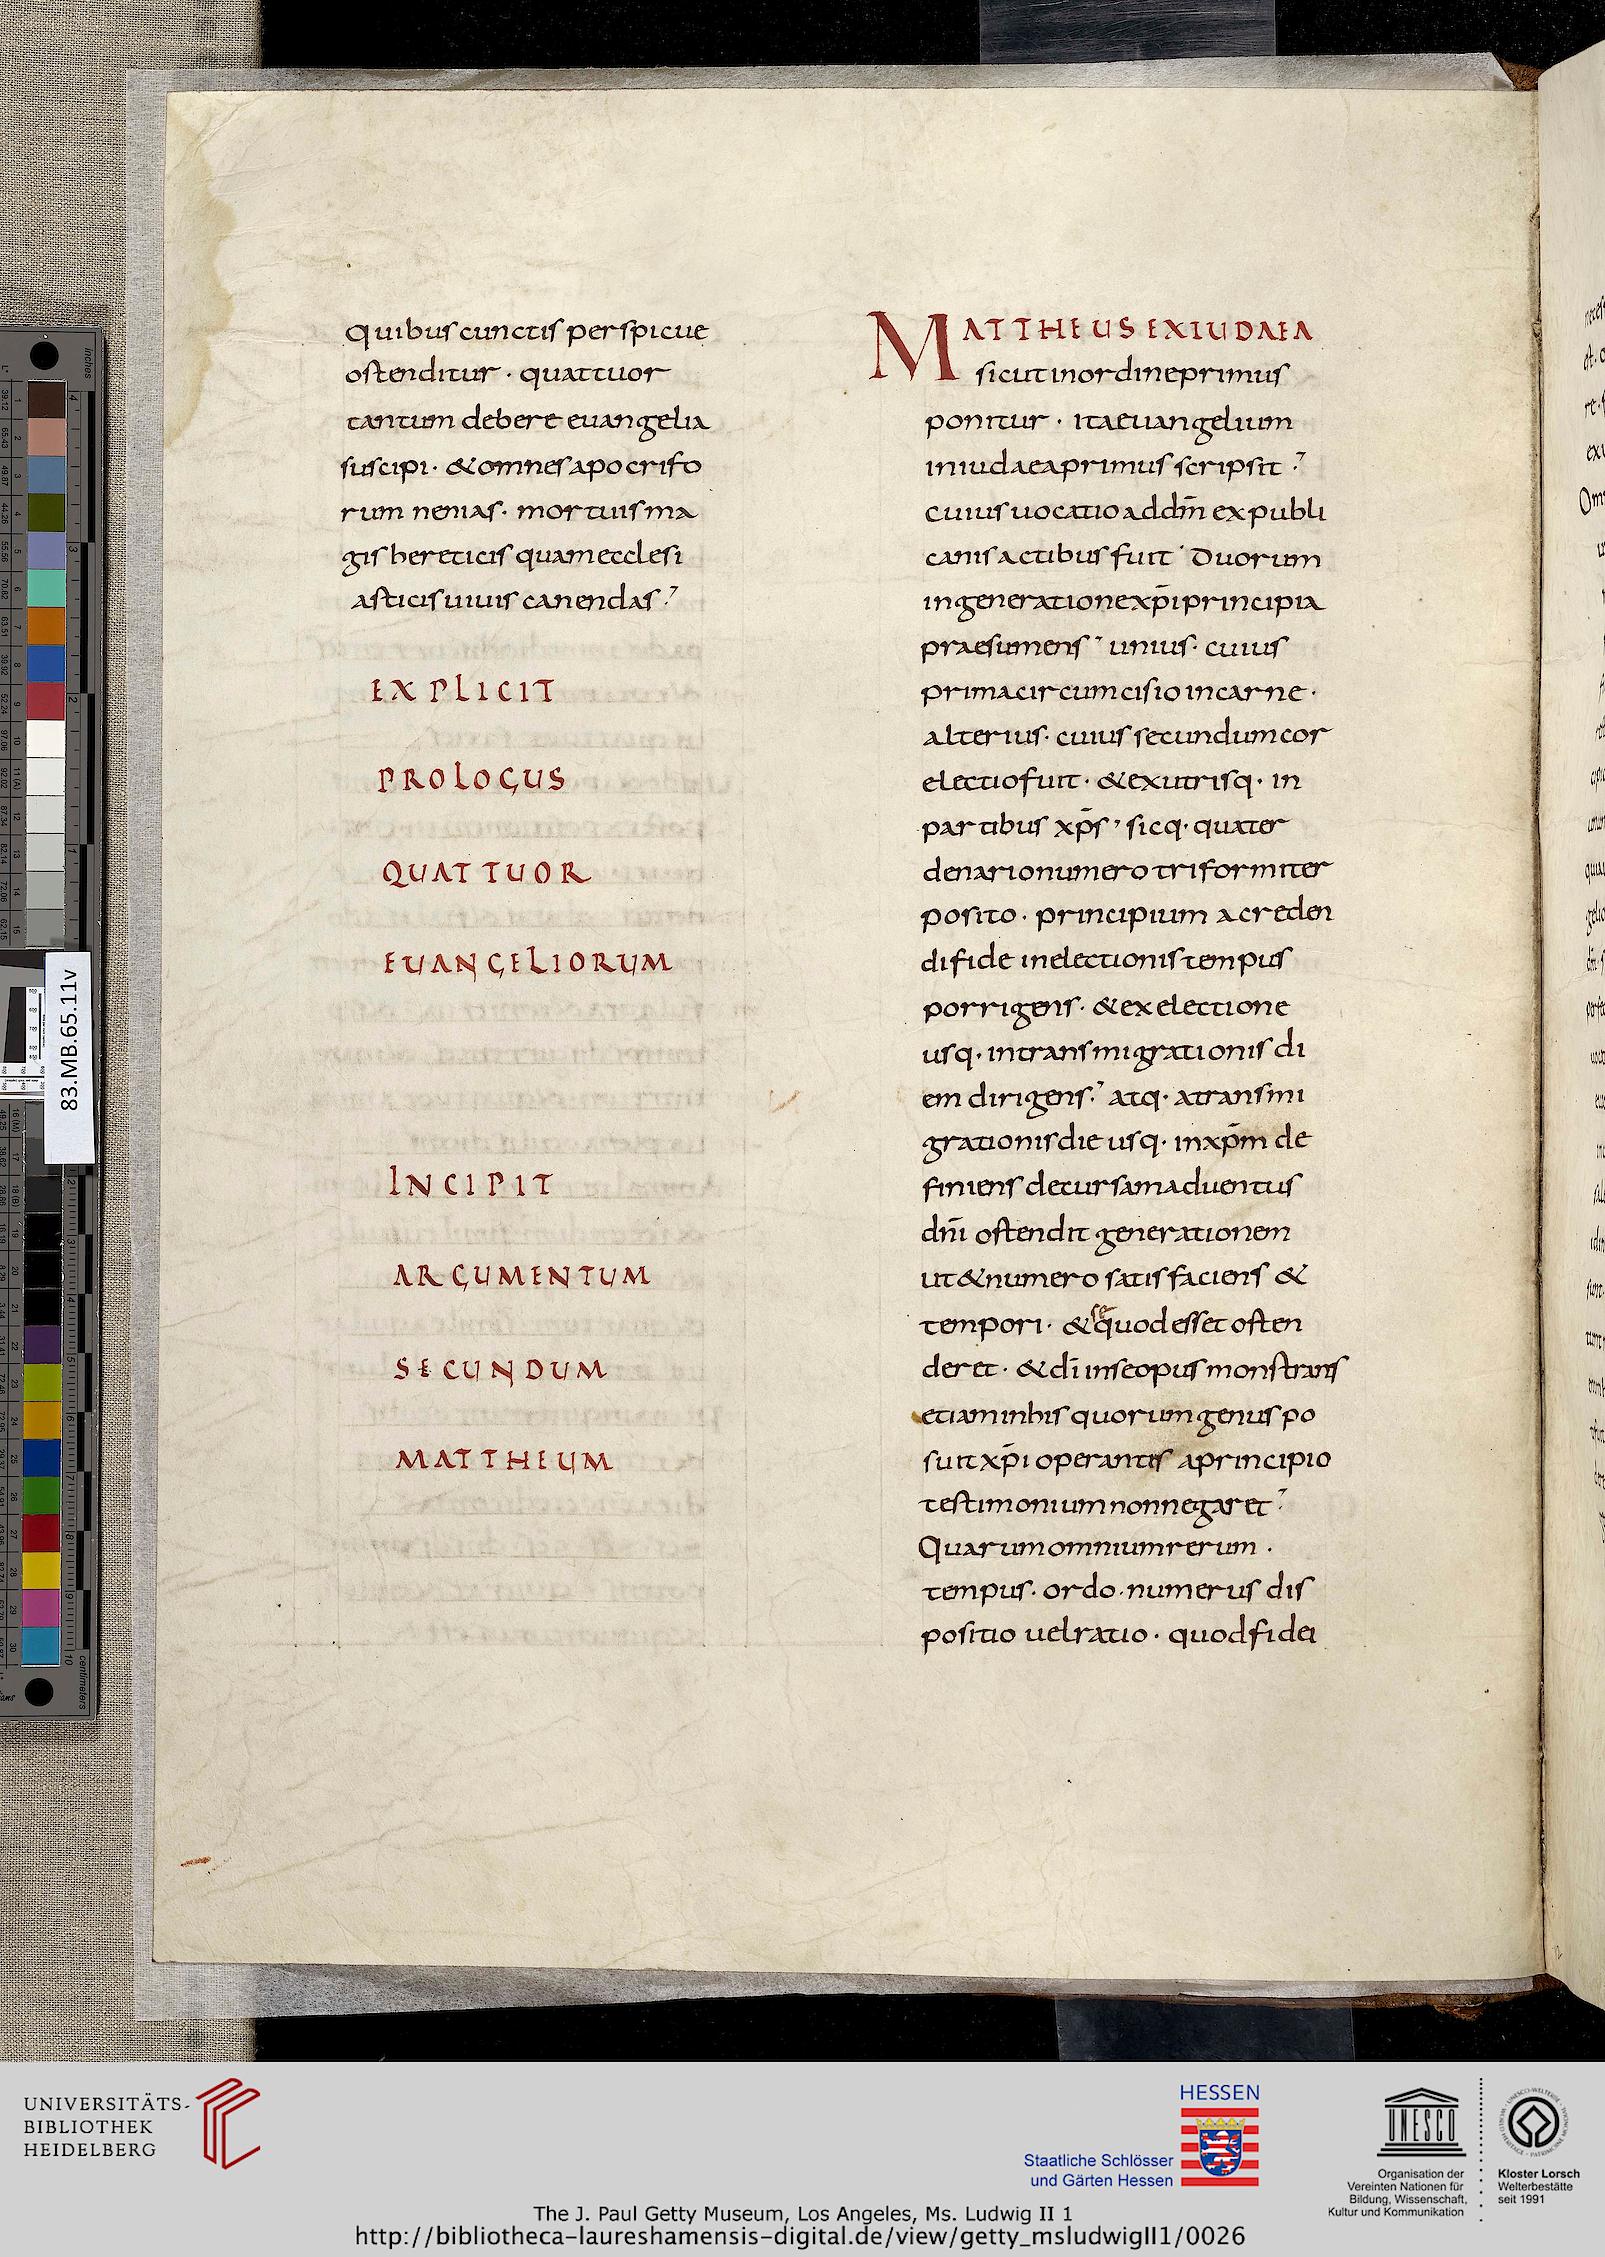 quibus cunctis perspicue
ostenditur · quattuor
tantum debere euangelia
suscipi · & omnes apocrifo
rum nenias · mortuis ma
gis hereticis quam ecclesi
asticis uiuis canendas
EXPLICIT
PROLOGUS
QUATTUOR
EUANGELIORUM
INCIPIT
ARGUMENTUM
SECUNDUM
MATTHEUM
MATTHEUS EX IUDAEA
sicut in ordine primus
ponitur · ita euangelium
in iudaea primus scripsit
cuius uocatio ad dm̄ ex publi
canis actibus fuit duorum
in generatione xp̄i principia
praesumens unius · cuius
prima circumcisio in carne ·
alterius · cuius secundum cor
electio fuit · & ex utrisq · in
partibus xp̄s sicq · quater
denario numero triformiter
posito · principium a creden
di fide in electionis tempus
porrigens · & ex electione
usq · in transmigrationis di
em dirigens atq · a transmi
grationis die usq · in xp̄m de
finiens decursam aduentus
dn̄i ostendit generationem
ut & numero satisfaciens &
tempori · & se quod esset osten
deret · & dī in se opus monstrans
etiam in his quorum genus po
suit xp̄i operantis a principio
testimonium non negaret
Quarum omnium rerum ·
tempus · ordo · numerus dis
positio uel ratio · quod fidei
83.MB.65.11v
UNIVERSITÄTS-
BIBLIOTHEK
HEIDELBERG
HESSEN
Staatliche Schlösser
und Gärten Hessen
UNESCO
Organisation der
Vereinten Nationen für
Bildung, Wissenschaft,
Kultur und Kommunikation
Kloster Lorsch
Welterbestätte
seit 1991
The J. Paul Getty Museum, Los Angeles, Ms. Ludwig II 1
http://bibliotheca-laureshamensis-digital.de/view/getty_msludwigII1/0026